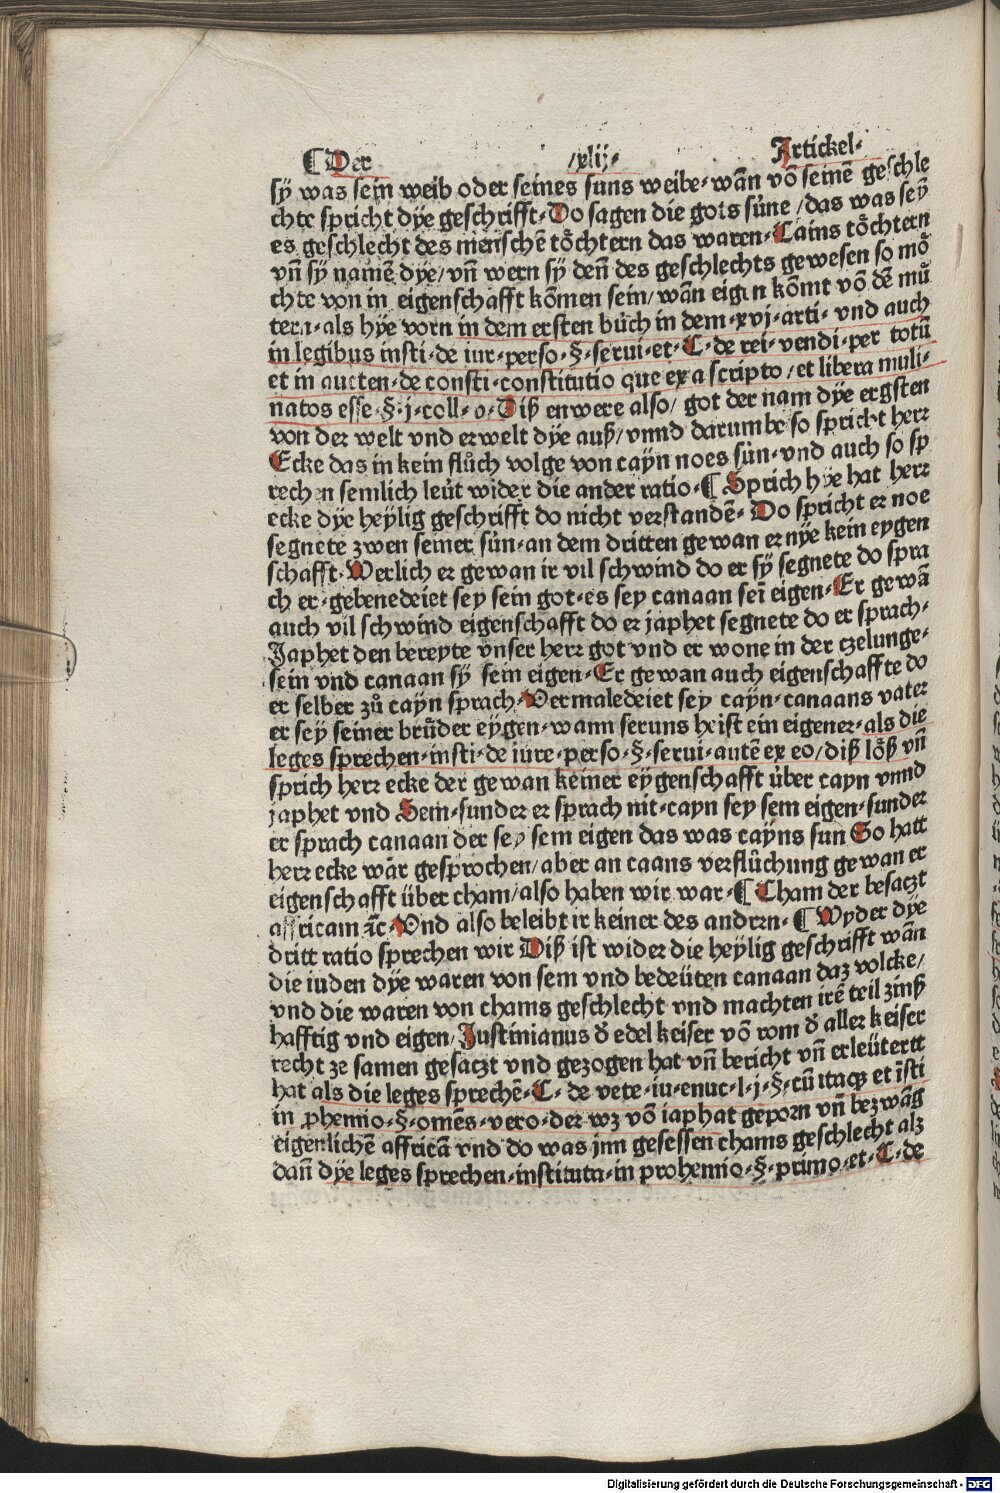 ¶ Der /xlij· Artickel·
sÿ was sein weib oder seines suns weibe· wañ võ seinẽ geschle
chte spricht dÿe geschrifft· Do sagen die gots süne /das was seÿ
es geschlecht des mẽnschẽ tö̈chtern das waren· Cains tö̈chtern
vñ sÿ namẽ dÿe/ vñ wern sÿ deñ des geschlechts gewesen so mö
chte von in eigenschafft kõmen sein/ wãn eigen kõmt võ dẽ mů
tern· als hÿe vorn in dem ersten bůch in dem·xvj·arti· vnd auch
in legibus insti·de iur·perso·§·serui·et·C·de rei·vendi·per totũ
et in aucten·de consti·constitutio que ex a scripto/et libera muli·
natos esse·§·j·coll·o· Diß enwere also/ got der nam dÿe ergsten
von der welt vnd erwelt dÿe auß/ vnnd darumbe so spricht herr
Ecke das in kein flůch volge von caÿn noes sün· vnd auch so sp
rechen semlich leüt wider die ander ratio· ¶ Sprich hÿe hat herr
ecke dÿe heÿlig geschrifft do nicht verstandẽ· Do spricht er noe
segnete zwen seiner sün·an dem dritten gewan er nÿe kein eygen
schafft· Werlich er gewan ir vil schwind do er sÿ segnete do spra
ch er·gebenedeiet sey sein got·es sey canaan seĩ eigen· Er gewã
auch vil schwind eigenschafft do er japhet segnete do er sprach·
Japhet den bereyte vnser herr got vnd er wone in der czelunge·
sein vnd canaan sÿ sein eigen· Er gewan auch eigenschaffte do
er selber zů caÿn sprach· Vermaledeiet sey caÿn·canaans vater
er sey seiner brůder eÿgen·wann seruns heist ein eigener·als die
leges sprechen·insti·de iure·perso·§·serui·autẽ ex eo/diß löß vñ
sprich herr ecke der gewan keiner eÿgenschafft über cayn vnnd
japhet vnd Sem·sunder er sprach nit·cayn sey sem eigen·sunder
er sprach canaan der sey sem eigen das was caÿns sun So hatt
herr ecke wär gesprochen/aber an caans verflůchung gewan er
eigenschafft über cham/also haben wir war· ¶ Cham der besaczt
affricam ꝛ̃c· Vnd also beleibt ir keiner des andern· ¶ Wyder dÿe
dritt ratio sprechen wir Diß ist wider die heÿlig geschrifft wãn
die iuden dÿe waren von sem vnd bedeüten canaan daz volcke/
vnd die waren von chams geschlecht vnd machten irẽ teil zinß
hafftig vnd eigen/ Justinianus đ edel keiser võ rom đ aller keiser
recht ze samen gesaczt vnd gezogen hat vñ bericht vñ erleütertt
hat als die leges sprechẽ· C· de vete·iu·enuc·l·j·§·cũ itaqꝫ et ĩsti
in ꝓhemio·§·omẽs·vero·der wz võ iaphat geporn vñ bezwãg
eigenlichẽ affricã vnd do was jnn gesessen chams geschlecht alz
dañ dÿe leges sprechen·instituta·in prohemio·§·primo·et·C·de
Digitalisierung gefördert durch die Deutsche Forschungsgemeinschaft · DFG